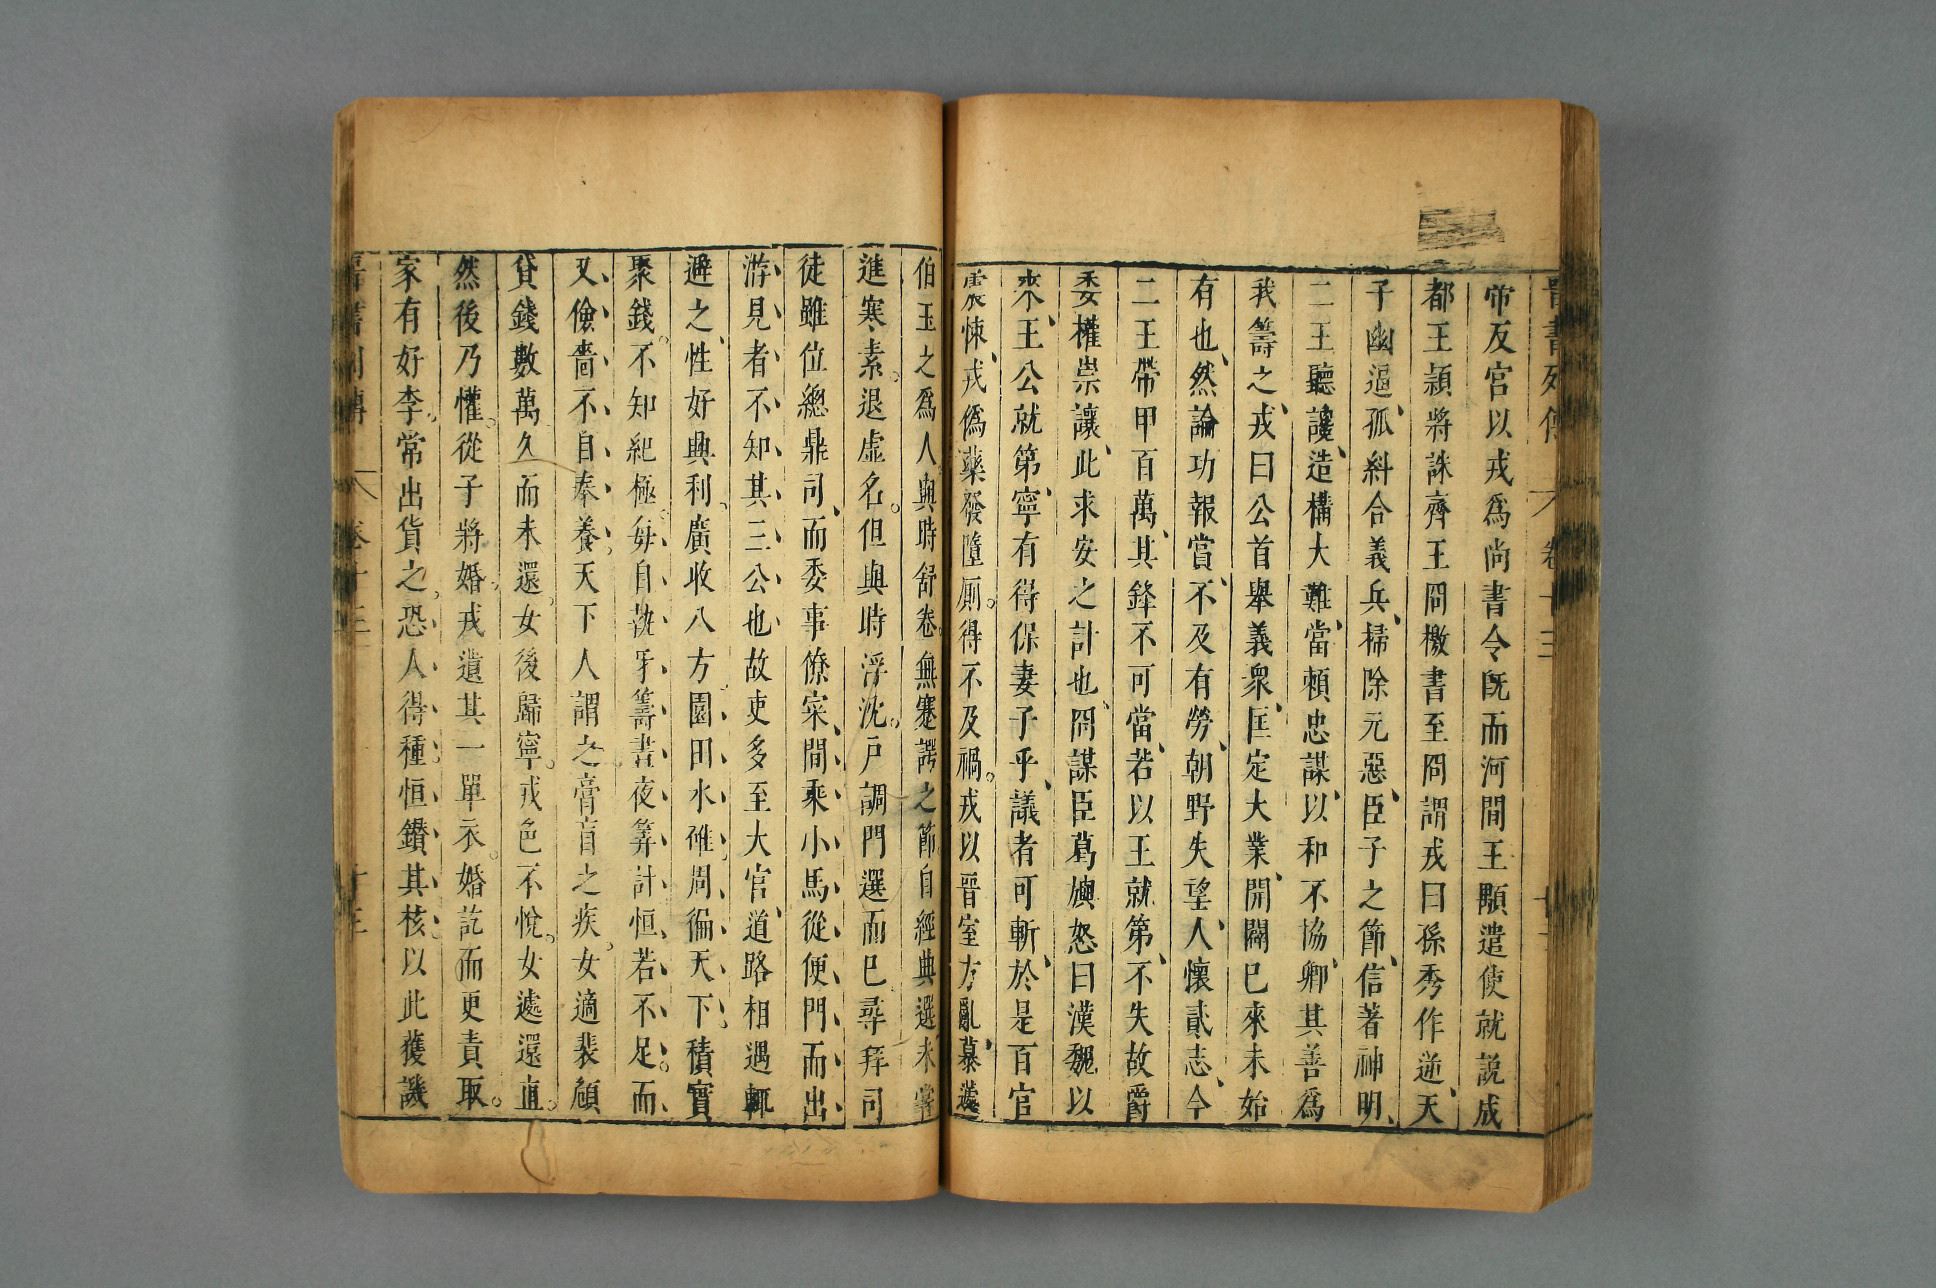 晉書列傳 卷十三
帝反宮以戎爲尚書令旣而河間王顒遣使就説成
都王頴將誅齊王冏檄書至冏謂戎曰孫秀作逆天
子幽逼孤糾合義兵掃除元惡臣子之節信著神明
二王聽讒造構大難當賴忠謀以和不協卿其善爲
我籌之戎曰公首舉義衆匡定大業開闢已來未始
有也然論功報賞不及有勞朝野失望人懷貳志今
二王帶甲百萬其鋒不可當若以王就第不失故爵
委權崇讓此求安之計也冏謀臣葛旟怒曰漢魏以
來王公就第寧有得保妻子乎議者可斬於是百官
震悚戎僞藥發墮厠得不及禍戎以晉室方亂慕蘧
伯玉之爲人與時舒卷無蹇諤之節自經典選未嘗
進寒素退虛名但與時浮沈戸調門選而已尋拜司
徒雖位總鼎司而委事僚寀間乘小馬從便門而出
游見者不知其三公也故吏多至大官道路相遇輒
避之性好興利廣收八方園田水碓周徧天下積實
聚錢不知紀極每自執牙籌晝夜筭計恒若不足而
又儉嗇不自奉養天下人謂之膏肓之疾女適裴頠
貸錢數萬久而未還女後歸寧戎色不悅女遽還直
然後乃懽從子將婚戎遺其一單衣婚訖而更責取
家有好李常出貨之恐人得種恒鑽其核以此獲譏
晉書列傳 卷十三 十三